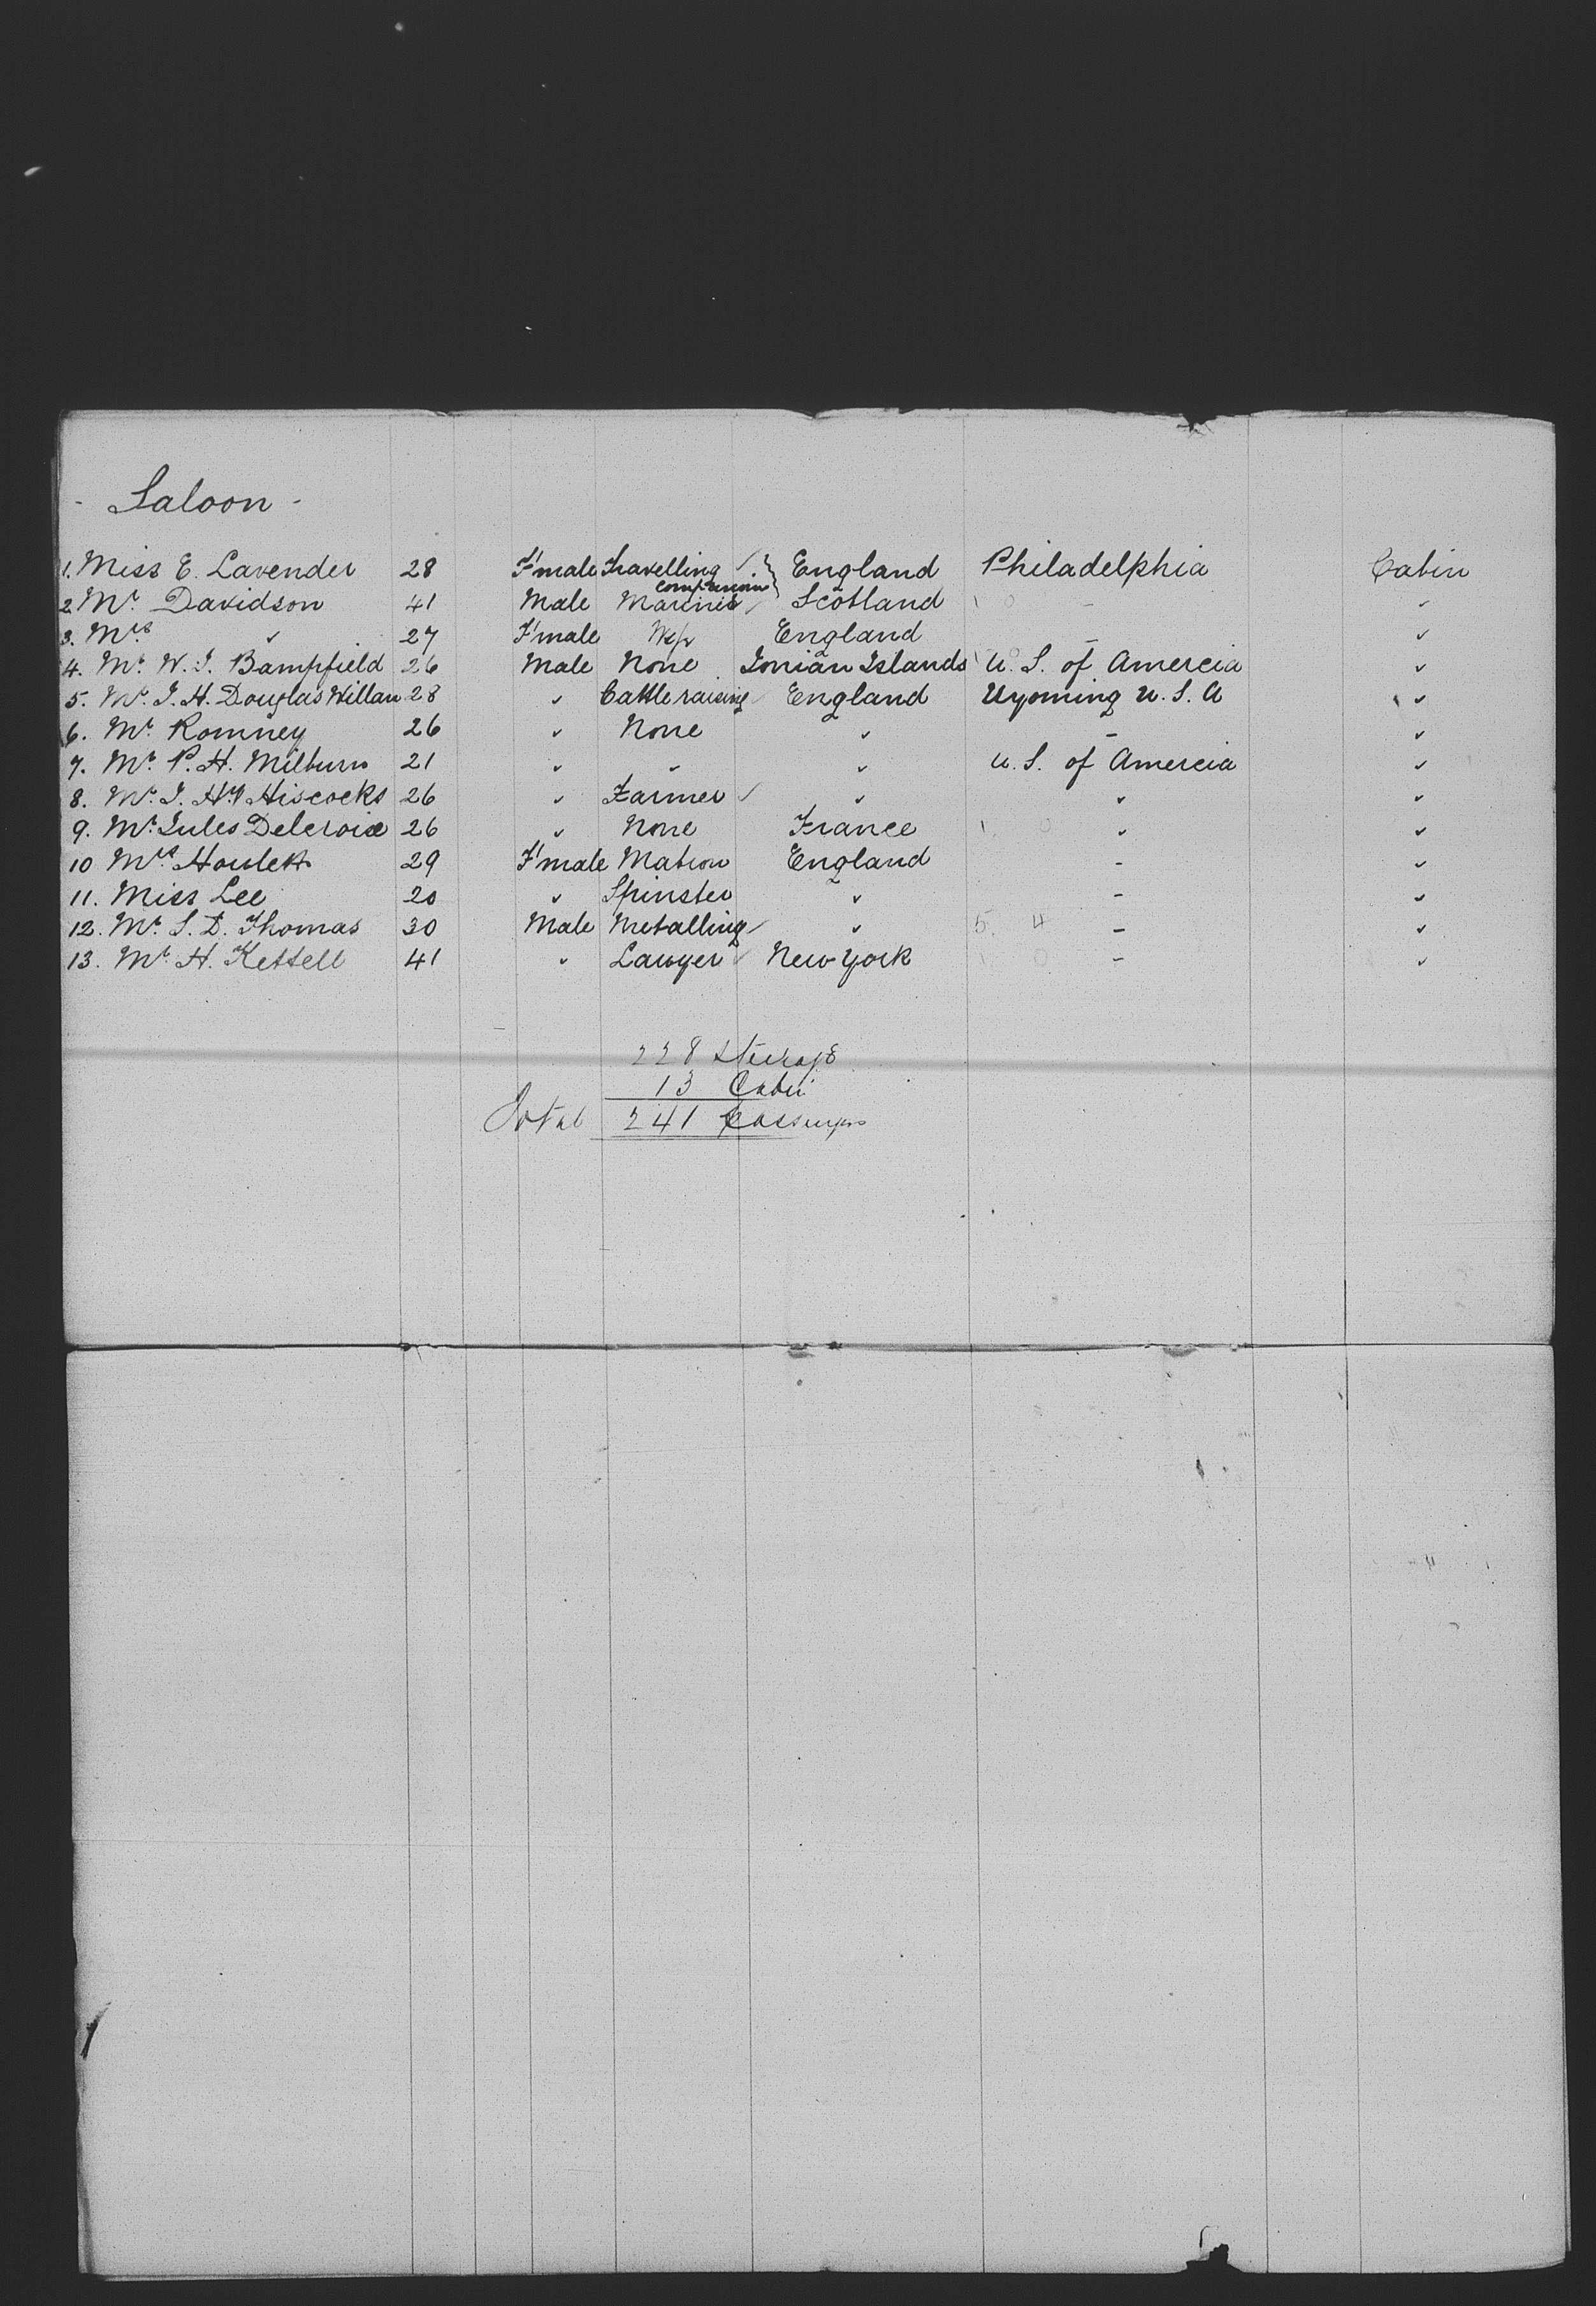 - Saloon -
1. Miss E. Lavender 28 F'male Travelling Companion England Philadelphia Cabin
2. Mr. Davidson 41 Male Mariner Scotland - "
3. Mrs. " 27 F'male Wife England - "
4. Mr. W. J. Bampfield 26 Male None Ionian Islands U. S. of Amercia "
5. Mr. J. H. Douglas Willan 28 " Cattle raising England Wyoming U. S. A "
6. Mr. Romney 26 " None " - "
7. Mr. P. H. Milburn 21 " " " U. S. of Amercia "
8. Mr. J. Hy Hiscocks 26 " Farmer " " "
9. Mr. Jules Delcroix 26 " None France " "
10 Mrs Houlett 29 F'male Matron England - "
11. Miss Lee 20 " Spinster " - "
12. Mr. S. D. Thomas 30 Male Metalling " 5. 4 - "
13. Mr. H. Kettell 41 " Lawyer New York - "
228 Steerage
13 Cabin
Total 241 Passengers